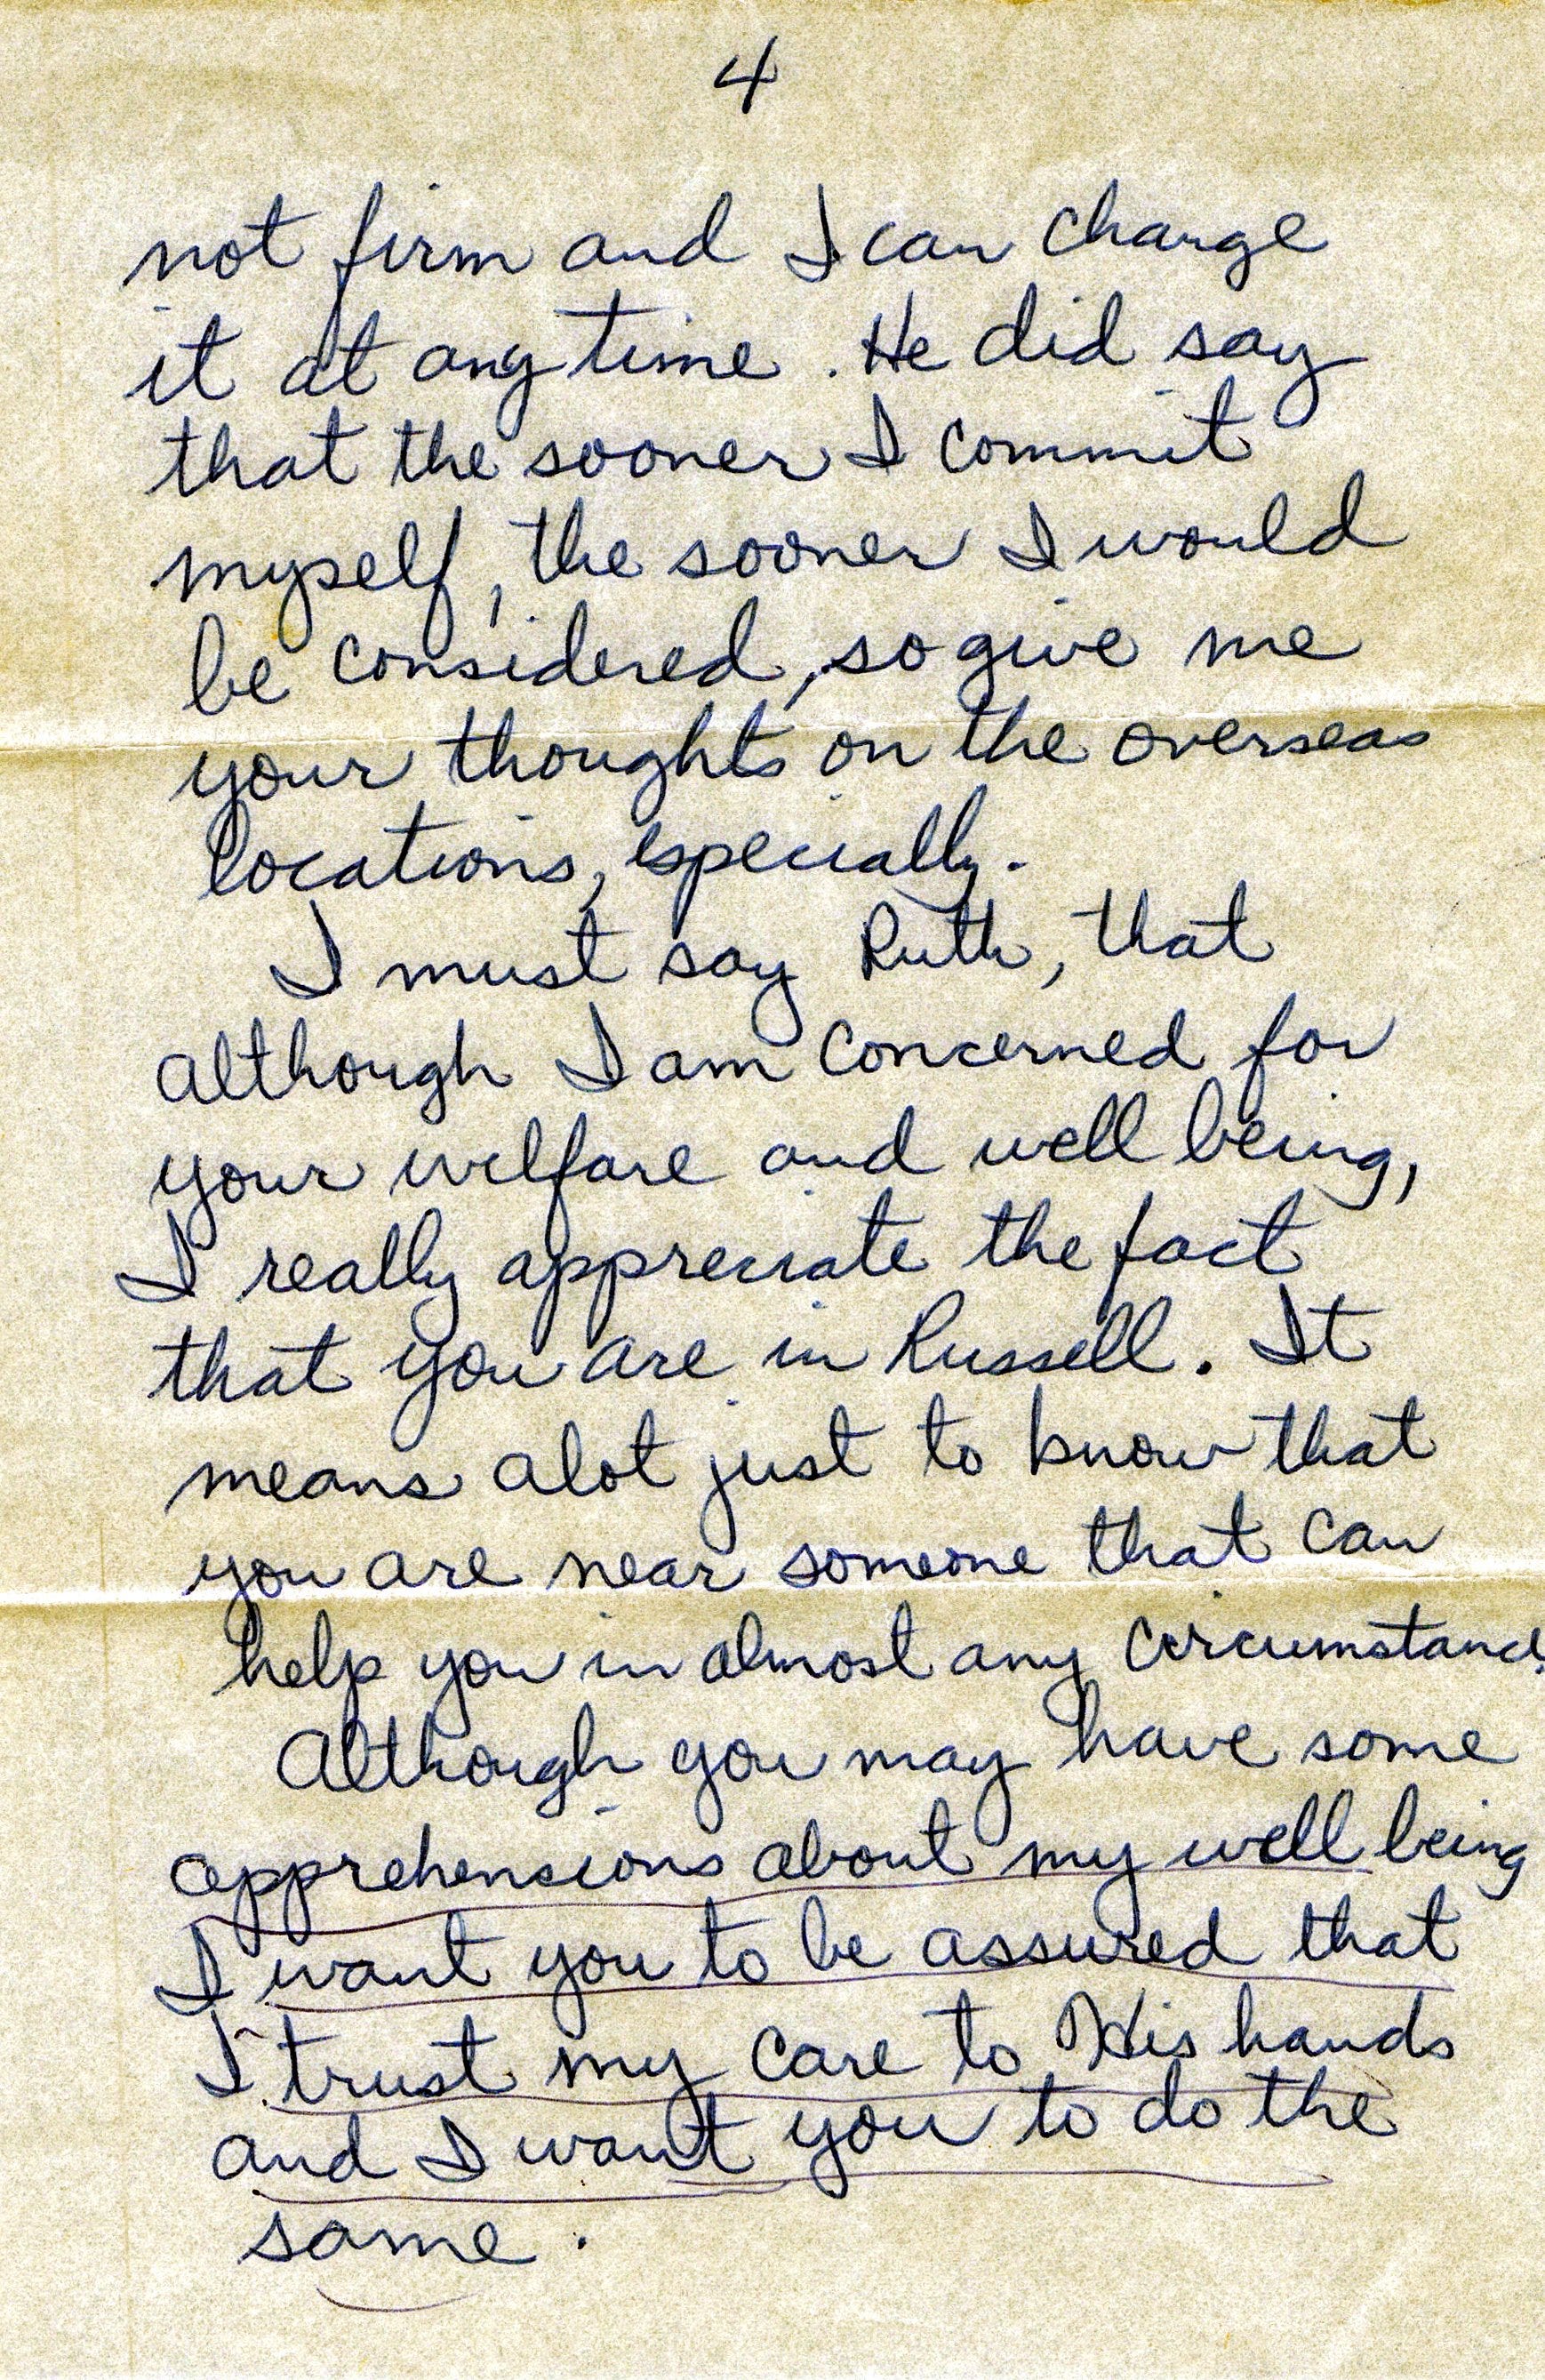 4
not firm and I can change
it at any time. He did say
that the sooner I commit
myself, the sooner I would
be considered, so give me
your thoughts on the overseas
locations, especially.
I must say Ruth, that
although I am concerned for
your welfare and well being,
I really appreciate the fact
that you are in Russell. It
means alot just to know that
you are near someone that can
help you in almost any circumstance.
Although you may have some
apprehensions about my well being
I want you to be assured that
I trust my care to His hands
and I want you to do the
same.